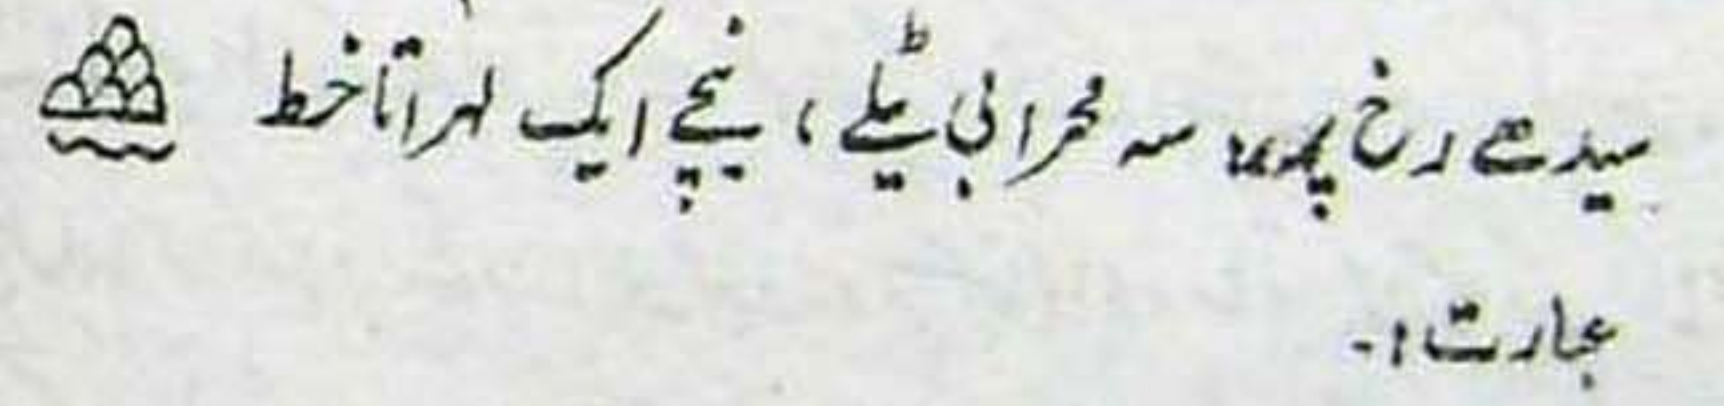 سیدھے رخ پر سہ محرابی ٹیلے، نیچے ایک لہراتا خط
عبارت:-